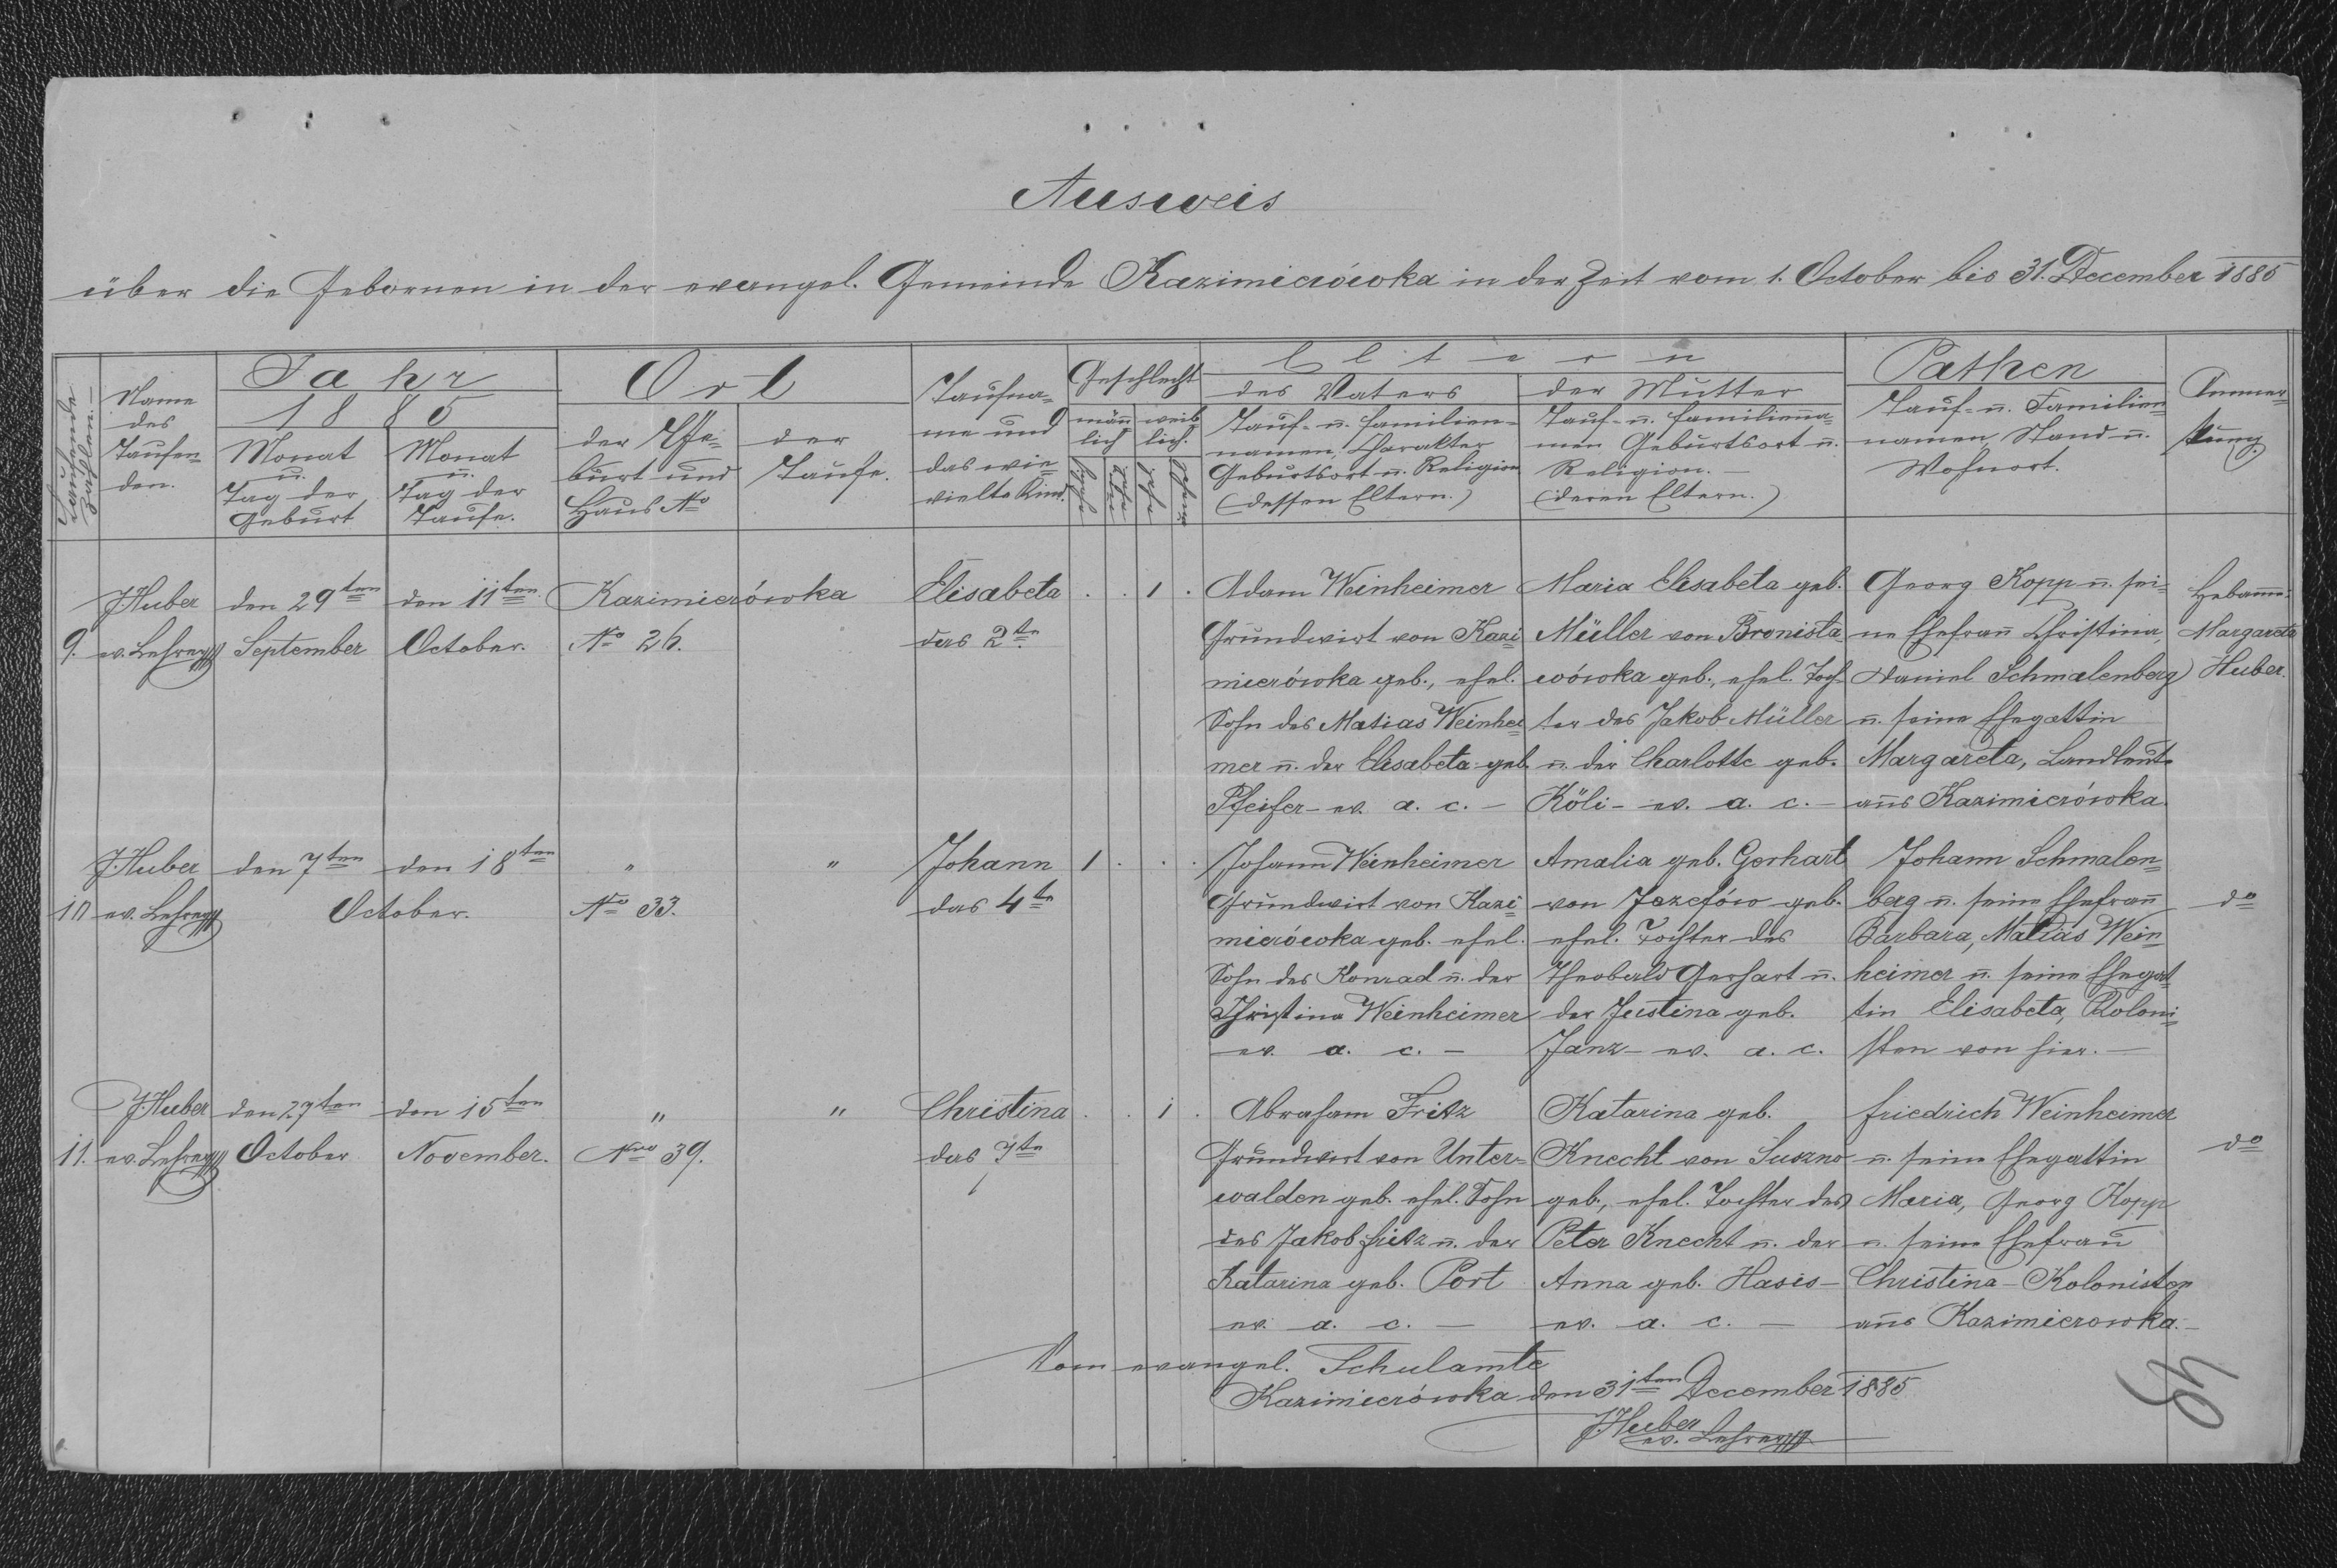 Ausweis
über die Gebornen in der evangel. Gemeinde Kazimierówka in der Zeit vom 1. October bis 31. December 1885
Fortlaufende
Zahl
Name
des
Taufen-
den.
Jahr
1885
Monat
u.
Tag der
Geburt
Monat
u.
Tag der
Taufe.
Ort
der Ge-
burt und
Haus No
der
Taufe.
Taufna-
me und
das wie-
vielte Kind.
Geschlecht
männ-
lich
weib-
lich.
Eltern
des Vaters
Tauf- u. Familien-
namen, Charakter
Geburtsort u. Religion
(dessen Eltern.)
der Mutter
Tauf- u. Familienna-
men Geburtsort u.
Religion.
(deren Eltern.)
Pathen
Tauf- u. Familien-
namen, Stand u.
Wohnort.
Anmer-
kung.
9.
J. Huber
ev. Lehrer
den 29ten
September
den 11ten
October.
Kazimierówka
No 26.
Elisabeta
das 2te
. . 1 .
Adam Weinheimer
Grundwirt von Kazi-
mierówka geb., ehel.
Sohn des Matias Weinhei-
mer u. der Elisabeta geb.
Pfeifer - ev. a. c. -
Maria Elisabeta geb.
Müller von Bronisła-
wówka geb., ehel. Toch-
ter des Jakob Müller
u. der Charlotte geb.
Köli - ev. a. c. -
Georg Kopp u. sei-
ne Ehefrau Christina,
Daniel Schmalenberg
u. seine Ehegattin
Margareta, Landleute
aus Kazimierówka.
Hebamme:
Margareta
Huber.
10
J. Huber
ev. Lehrer
den 7ten
den 18ten
October.
"
No 33.
"
Johann
das 4te
1 . . .
Johann Weinheimer
Grundwirt von Kazi-
mierówka geb. ehel.
Sohn des Konrad u. der
Christina Weinheimer
ev. a. c. -
Amalia geb. Gerhart
von Jozefów geb.
ehel. Tochter des
Theobald Gerhart u.
der Justina geb.
Janz - ev. a. c.
Johann Schmalen-
berg u. seine Ehefrau
Barbara, Matias Wein-
heimer u. seine Ehegat-
tin Elisabeta, Koloni-
sten von hier. -
do
11.
J. Huber
ev. Lehrer
den 27ten
October
den 15ten
November.
"
Nro 39.
"
Christina
das 7te
. . 1 .
Abraham Fritz
Grundwirt von Unter-
walden geb. ehel. Sohn
des Jakob Fritz u. der
Katarina geb. Port
ev. a. c. -
Katarina geb.
Knecht von Suszno
geb., ehel. Tochter des
Peter Knecht u. der
Anna geb. Hasis -
ev. a. c. -
Friedrich Weinheimer
u. seine Ehegattin
Maria, Georg Kopp
u. seine Ehefrau
Christina - Kolonisten
aus Kazimierowka. -
do
Vom evangel. Schulamte
Kazimierówka den 31ten December 1885
J. Huber
ev. Lehrer